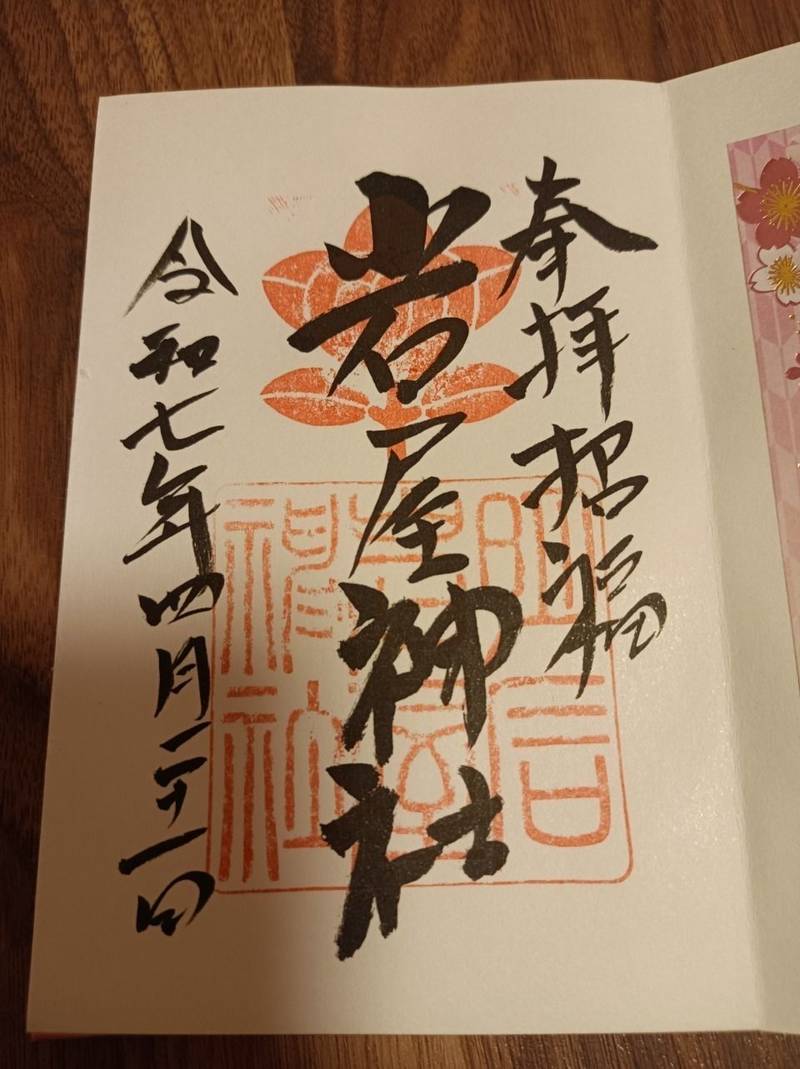 奉拝招福
岩屋神社
令和七年四月二十一日
明石
岩屋
神社